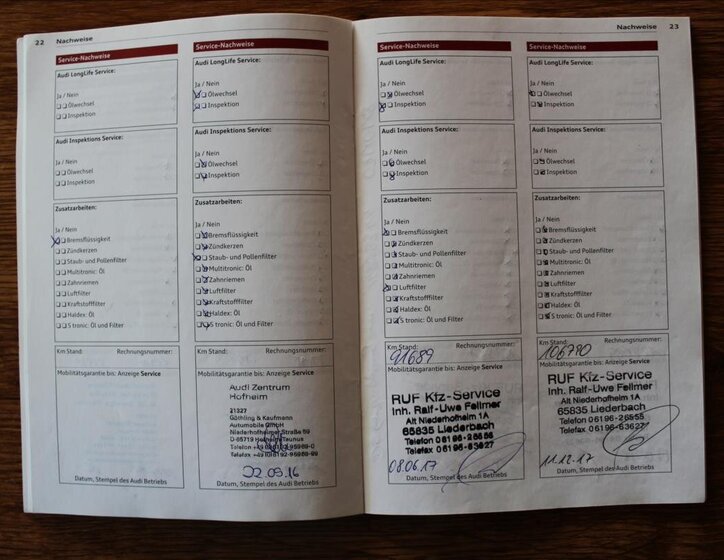 22 Nachweise
Service-Nachweise
Audi LongLife Service:
Ja / Nein
Ölwechsel
Inspektion
Audi Inspektions Service:
Ja / Nein
Ölwechsel
Inspektion
Zusatzarbeiten:
Ja / Nein
Bremsflüssigkeit
Zündkerzen
Staub- und Pollenfilter
Multitronic: Öl
Zahnriemen
Luftfilter
Kraftstofffilter
Haldex: Öl
S tronic: Öl und Filter
Km Stand: Rechnungsnummer:
Mobilitätsgarantie bis: Anzeige Service
Datum, Stempel des Audi Betriebs
Service-Nachweise
Audi LongLife Service:
Ja / Nein
Ölwechsel
Inspektion
Audi Inspektions Service:
Ja / Nein
Ölwechsel
Inspektion
Zusatzarbeiten:
Ja / Nein
Bremsflüssigkeit
Zündkerzen
Staub- und Pollenfilter
Multitronic: Öl
Zahnriemen
Luftfilter
Kraftstofffilter
Haldex: Öl
S tronic: Öl und Filter
Km Stand: Rechnungsnummer:
Mobilitätsgarantie bis: Anzeige Service
Audi Zentrum
Hofheim
21327
Göthling & Kaufmann
Automobile GmbH
Niederhofheimer Straße 59
D-65719 Taunus
Telefon
Telefax
22.09.16
Datum, Stempel des Audi Betriebs
Nachweise 23
Service-Nachweise
Audi LongLife Service:
Ja / Nein
Ölwechsel
Inspektion
Audi Inspektions Service:
Ja / Nein
Ölwechsel
Inspektion
Zusatzarbeiten:
Ja / Nein
Bremsflüssigkeit
Zündkerzen
Staub- und Pollenfilter
Multitronic: Öl
Zahnriemen
Luftfilter
Kraftstofffilter
Haldex: Öl
S tronic: Öl und Filter
Km Stand: Rechnungsnummer:
91689
Mobilitätsgarantie bis: Anzeige Service
RUF Kfz-Service
Inh. Ralf-Uwe Fellmer
Alt Niederhofheim 1A
65835 Liederbach
Telefon 06196-26555
Telefax 06196-63627
08.06.17
Datum, Stempel des Audi Betriebs
Service-Nachweise
Audi LongLife Service:
Ja / Nein
Ölwechsel
Inspektion
Audi Inspektions Service:
Ja / Nein
Ölwechsel
Inspektion
Zusatzarbeiten:
Ja / Nein
Bremsflüssigkeit
Zündkerzen
Staub- und Pollenfilter
Multitronic: Öl
Zahnriemen
Luftfilter
Kraftstofffilter
Haldex: Öl
S tronic: Öl und Filter
Km Stand: Rechnungsnummer:
106780
Mobilitätsgarantie bis: Anzeige Service
RUF Kfz-Service
Inh. Ralf-Uwe Fellmer
Alt Niederhofheim 1A
65835 Liederbach
Telefon 06196-26555
Telefax 06196-63627
11.12.17
Datum, Stempel des Audi Betriebs